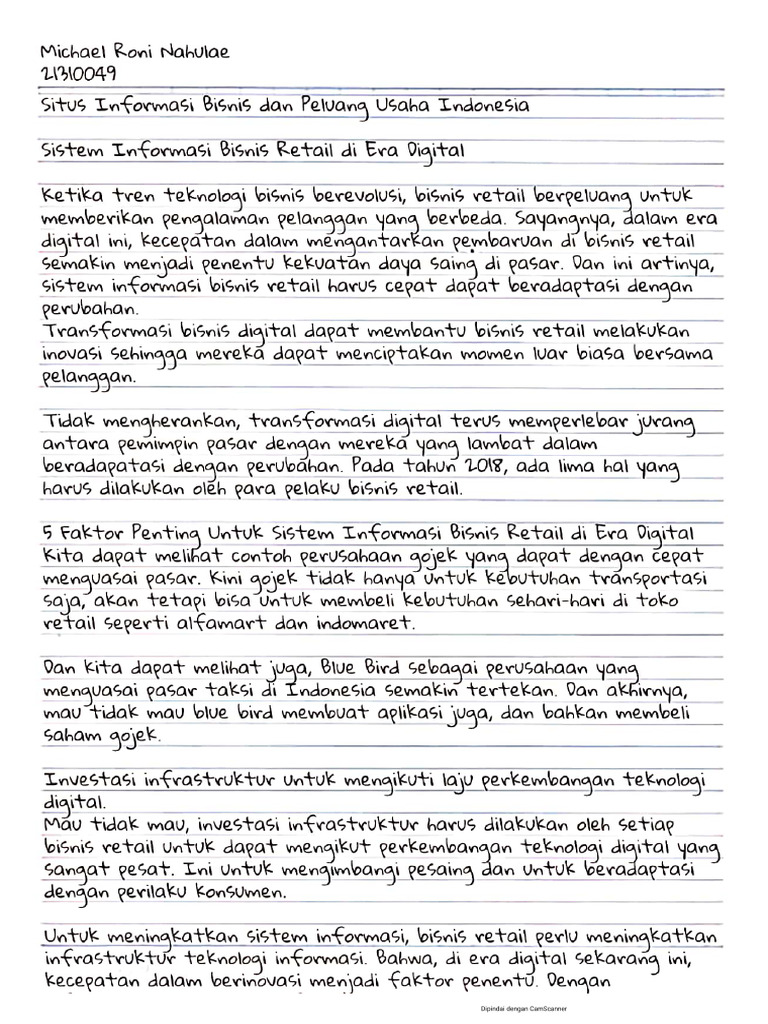 Michael Roni Nahulae
21310049
Situs Informasi Bisnis dan Peluang Usaha Indonesia
Sistem Informasi Bisnis Retail di Era Digital
Ketika tren teknologi bisnis berevolusi, bisnis retail berpeluang untuk
memberikan pengalaman pelanggan yang berbeda. Sayangnya, dalam era
digital ini, kecepatan dalam mengantarkan pembaruan di bisnis retail
semakin menjadi penentu kekuatan daya saing di pasar. Dan ini artinya,
sistem informasi bisnis retail harus cepat dapat beradaptasi dengan
perubahan.
Transformasi bisnis digital dapat membantu bisnis retail melakukan
inovasi sehingga mereka dapat menciptakan momen luar biasa bersama
pelanggan.
Tidak mengherankan, transformasi digital terus memperlebar jurang
antara pemimpin pasar dengan mereka yang lambat dalam
beradapatasi dengan perubahan. Pada tahun 2018, ada lima hal yang
harus dilakukan oleh para pelaku bisnis retail.
5 Faktor Penting Untuk Sistem Informasi Bisnis Retail di Era Digital
Kita dapat melihat contoh perusahaan gojek yang dapat dengan cepat
menguasai pasar. Kini gojek tidak hanya untuk kebutuhan transportasi
saja, akan tetapi bisa untuk membeli kebutuhan sehari-hari di toko
retail seperti alfamart dan indomaret.
Dan kita dapat melihat juga, Blue Bird sebagai perusahaan yang
menguasai pasar taksi di Indonesia semakin tertekan. Dan akhirnya,
mau tidak mau blue bird membuat aplikasi juga, dan bahkan membeli
saham gojek.
Investasi infrastruktur untuk mengikuti laju perkembangan teknologi
digital.
Mau tidak mau, investasi infrastruktur harus dilakukan oleh setiap
bisnis retail untuk dapat mengikut perkembangan teknologi digital yang
sangat pesat. Ini untuk mengimbangi pesaing dan untuk beradaptasi
dengan perilaku konsumen.
Untuk meningkatkan sistem informasi, bisnis retail perlu meningkatkan
infrastruktur teknologi informasi. Bahwa, di era digital sekarang ini,
kecepatan dalam berinovasi menjadi faktor penentu. Dengan
Dipindai dengan CamScanner